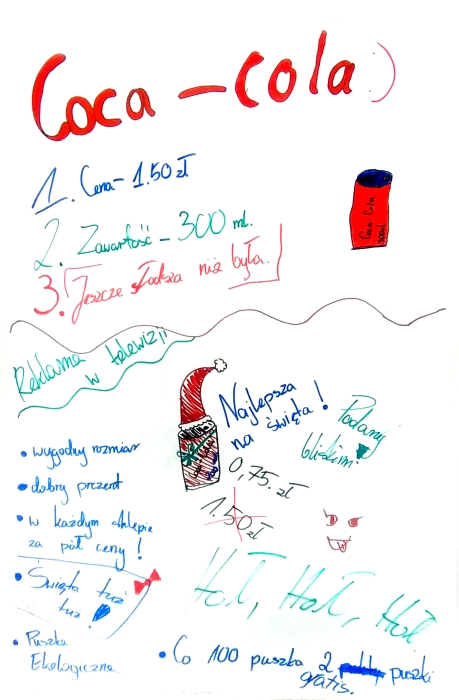 Coca - Cola :)
1. Cena - 1.50 zł
2. Zawartość - 300 ml.
3. Jeszcze słodsza niż była.
Coca-Cola
300ml
Reklama
w telewizji
Najlepsza
na święta!
Podaruj
bliskim!
0,75. zł
1.50 zł
• wygodny rozmiar
• dobry prezent
• w każdym sklepie
za pół ceny!
• Święta tuż
tuż
Hoł, Hoł, Hoł
• Puszka
Ekologiczna
• Co 100 puszka 2 puszki
gratis.